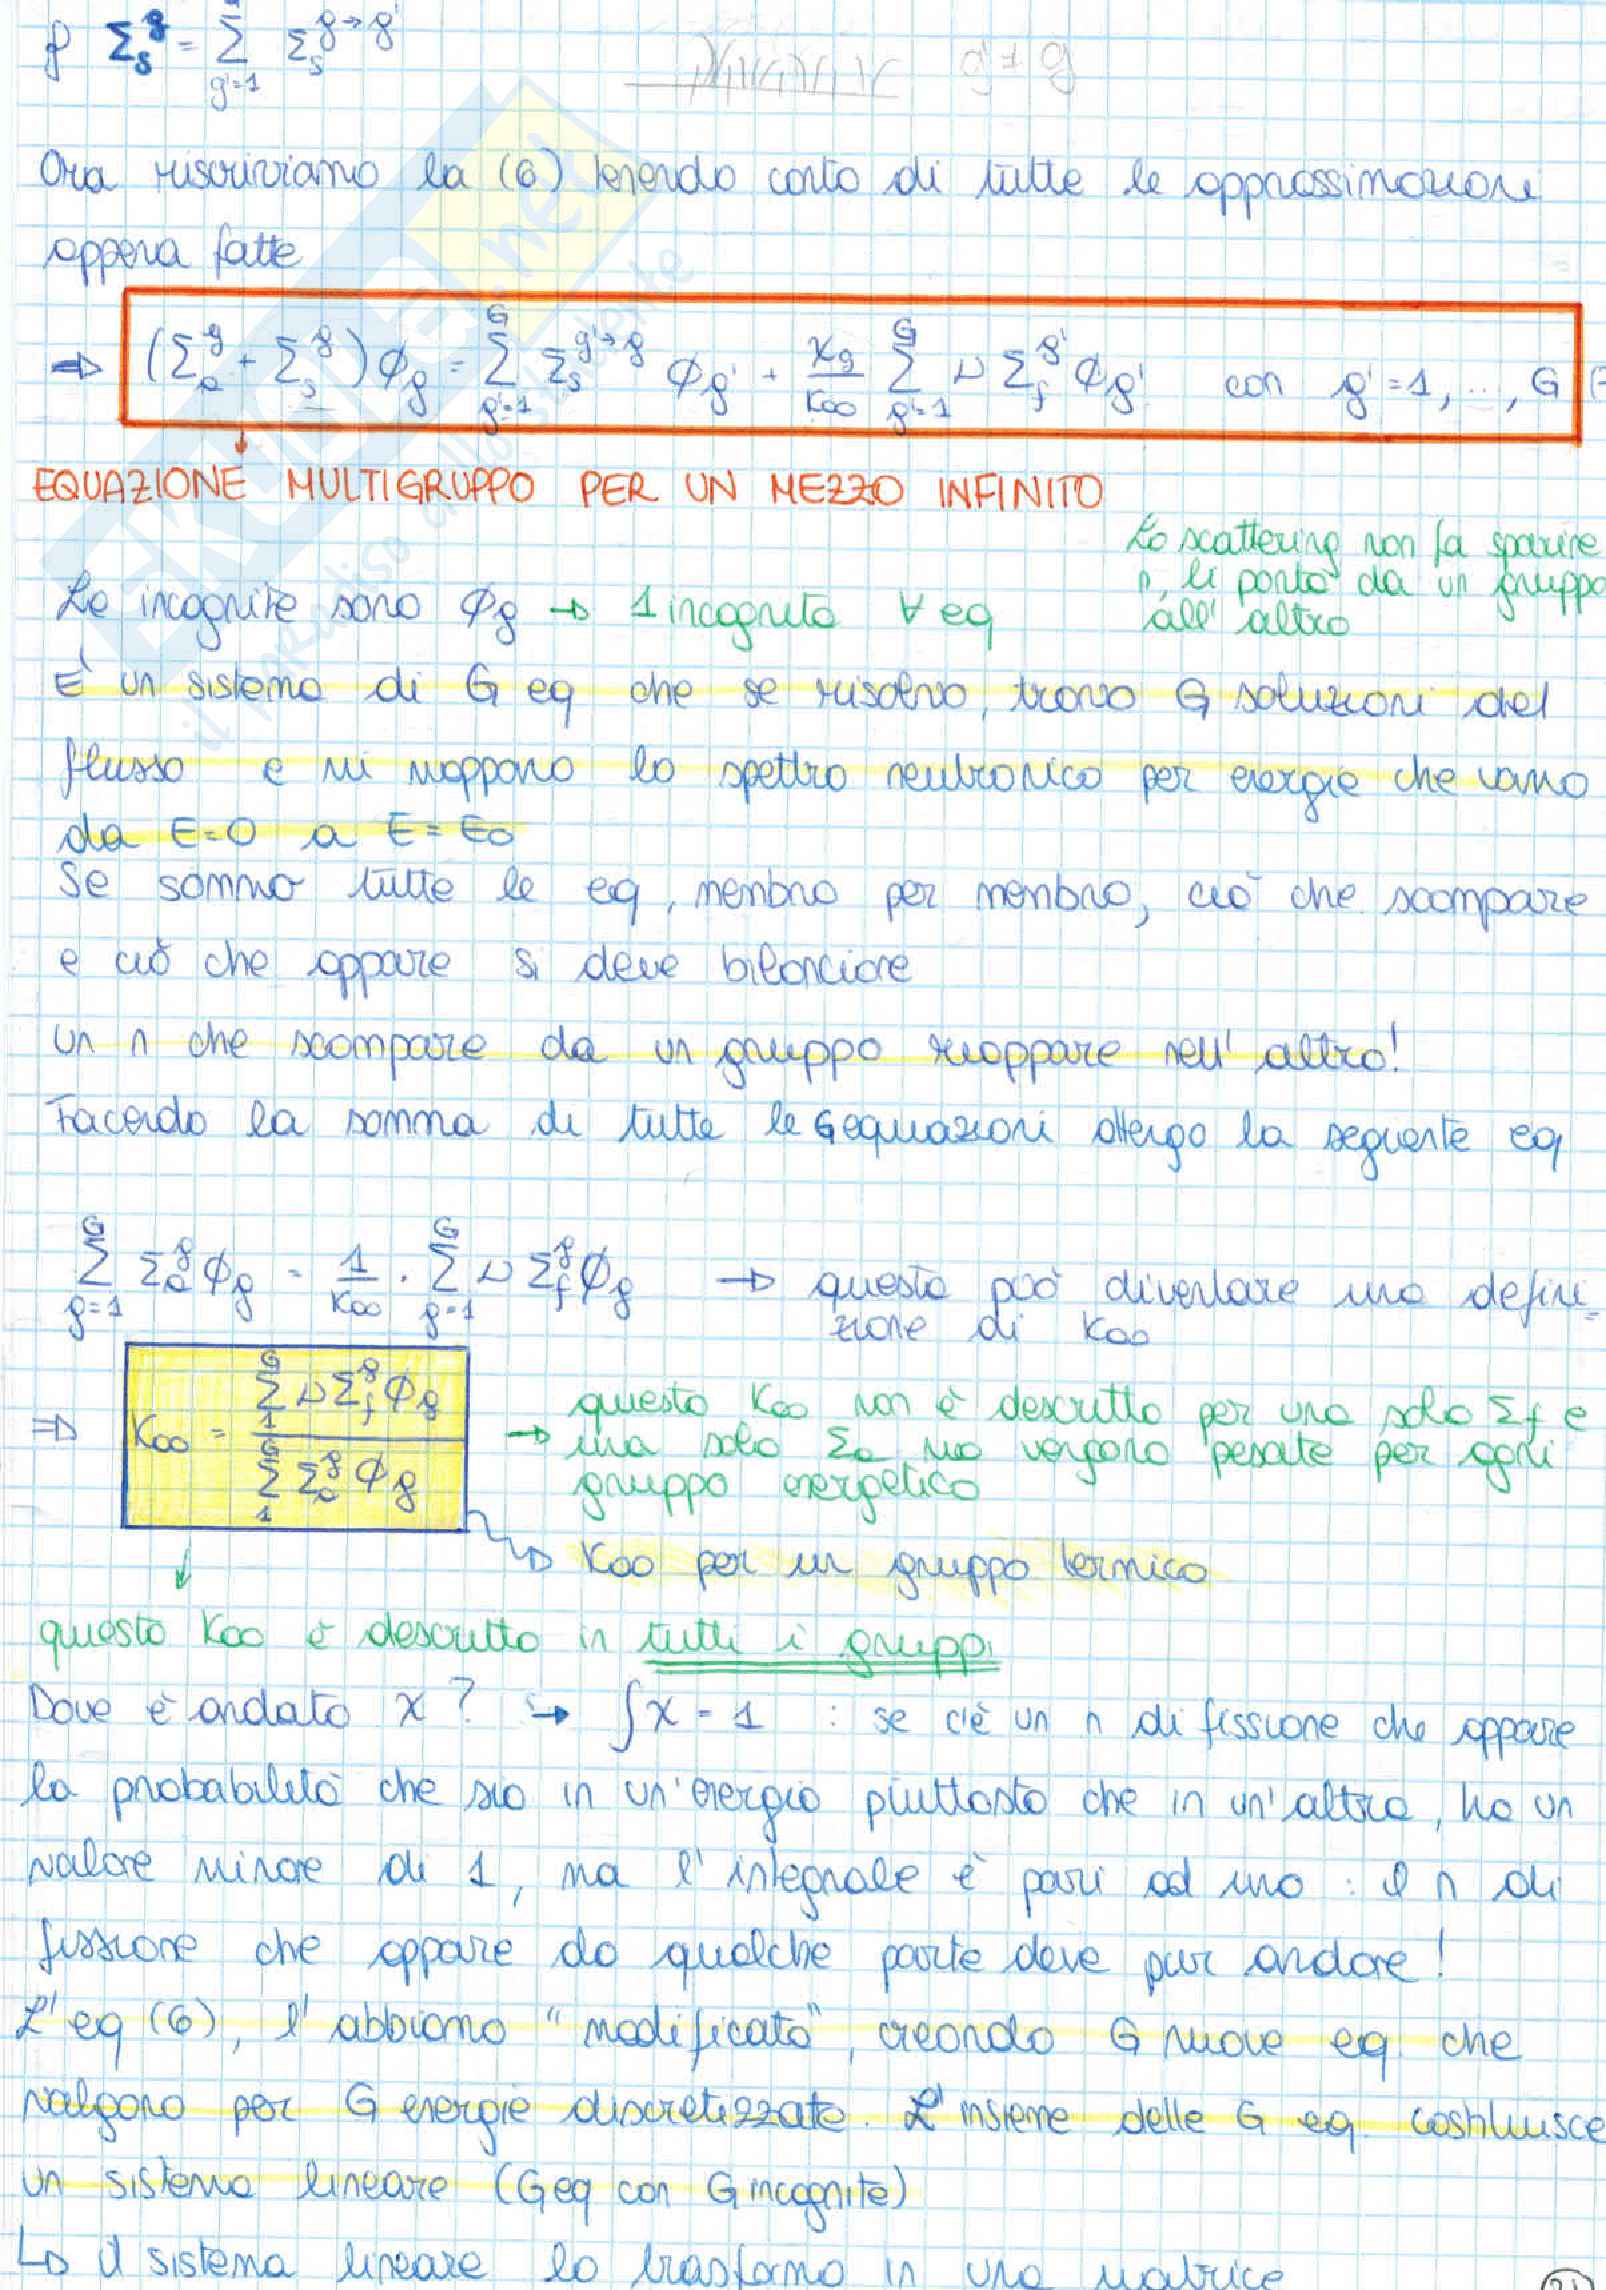 Σ_s^g = Σ_{g'=1} Σ_s^{g→g'} g'≠g
Ora riscriviamo la (6) tenendo conto di tutte le approssimazioni
appena fatte
⇒ (Σ_a^g + Σ_s^g) ϕ_g = Σ_{g'=1}^G Σ_s^{g'→g} ϕ_g' + χ_g/K∞ Σ_{g'=1}^G ν Σ_f^{g'} ϕ_g' con g'=1, ..., G
EQUAZIONE MULTIGRUPPO PER UN MEZZO INFINITO
Lo scattering non fa sparire
n, li porta da un gruppo
all'altro
Le incognite sono ϕ_g → 1 incognita ∀ eq
E' un sistema di G eq che se risolvo, trovo G soluzioni del
flusso e mi mappano lo spettro neutronico per energie che vanno
da E=0 a E=E0
Se sommo tutte le eq, membro per membro, ciò che scompare
e ciò che appare si deve bilanciare
un n che scompare da un gruppo riappare nell'altro!
Facendo la somma di tutte le G equazioni ottengo la seguente eq
Σ_{g=1}^G Σ_a^g ϕ_g = 1/K∞ · Σ_{g=1}^G ν Σ_f^g ϕ_g → questa può diventare una defini=
zione di K∞
⇒ K∞ = Σ_1^G ν Σ_f^g ϕ_g / Σ_1^G Σ_a^g ϕ_g
→ questo K∞ non è descritto per una sola Σf e
una sola Σa ma vengono pesate per ogni
gruppo energetico
K∞ per un gruppo termico
questo K∞ è descritto in tutti i gruppi
Dove è andato χ? ↪ ∫χ = 1 : se c'è un n di fissione che appare
la probabilità che sia in un'energia piuttosto che in un'altra, ha un
valore minore di 1, ma l'integrale è pari ad uno : il n di
fissione che appare da qualche parte deve pur andare!
L'eq (6), l'abbiamo "modificata", creando G nuove eq. che
valgono per G energie discretizzate. L'insieme delle G eq. costituisce
un sistema lineare (G eq con G incognite)
↳ il sistema lineare lo trasformo in una matrice
skuola.net
il paradiso dello studente